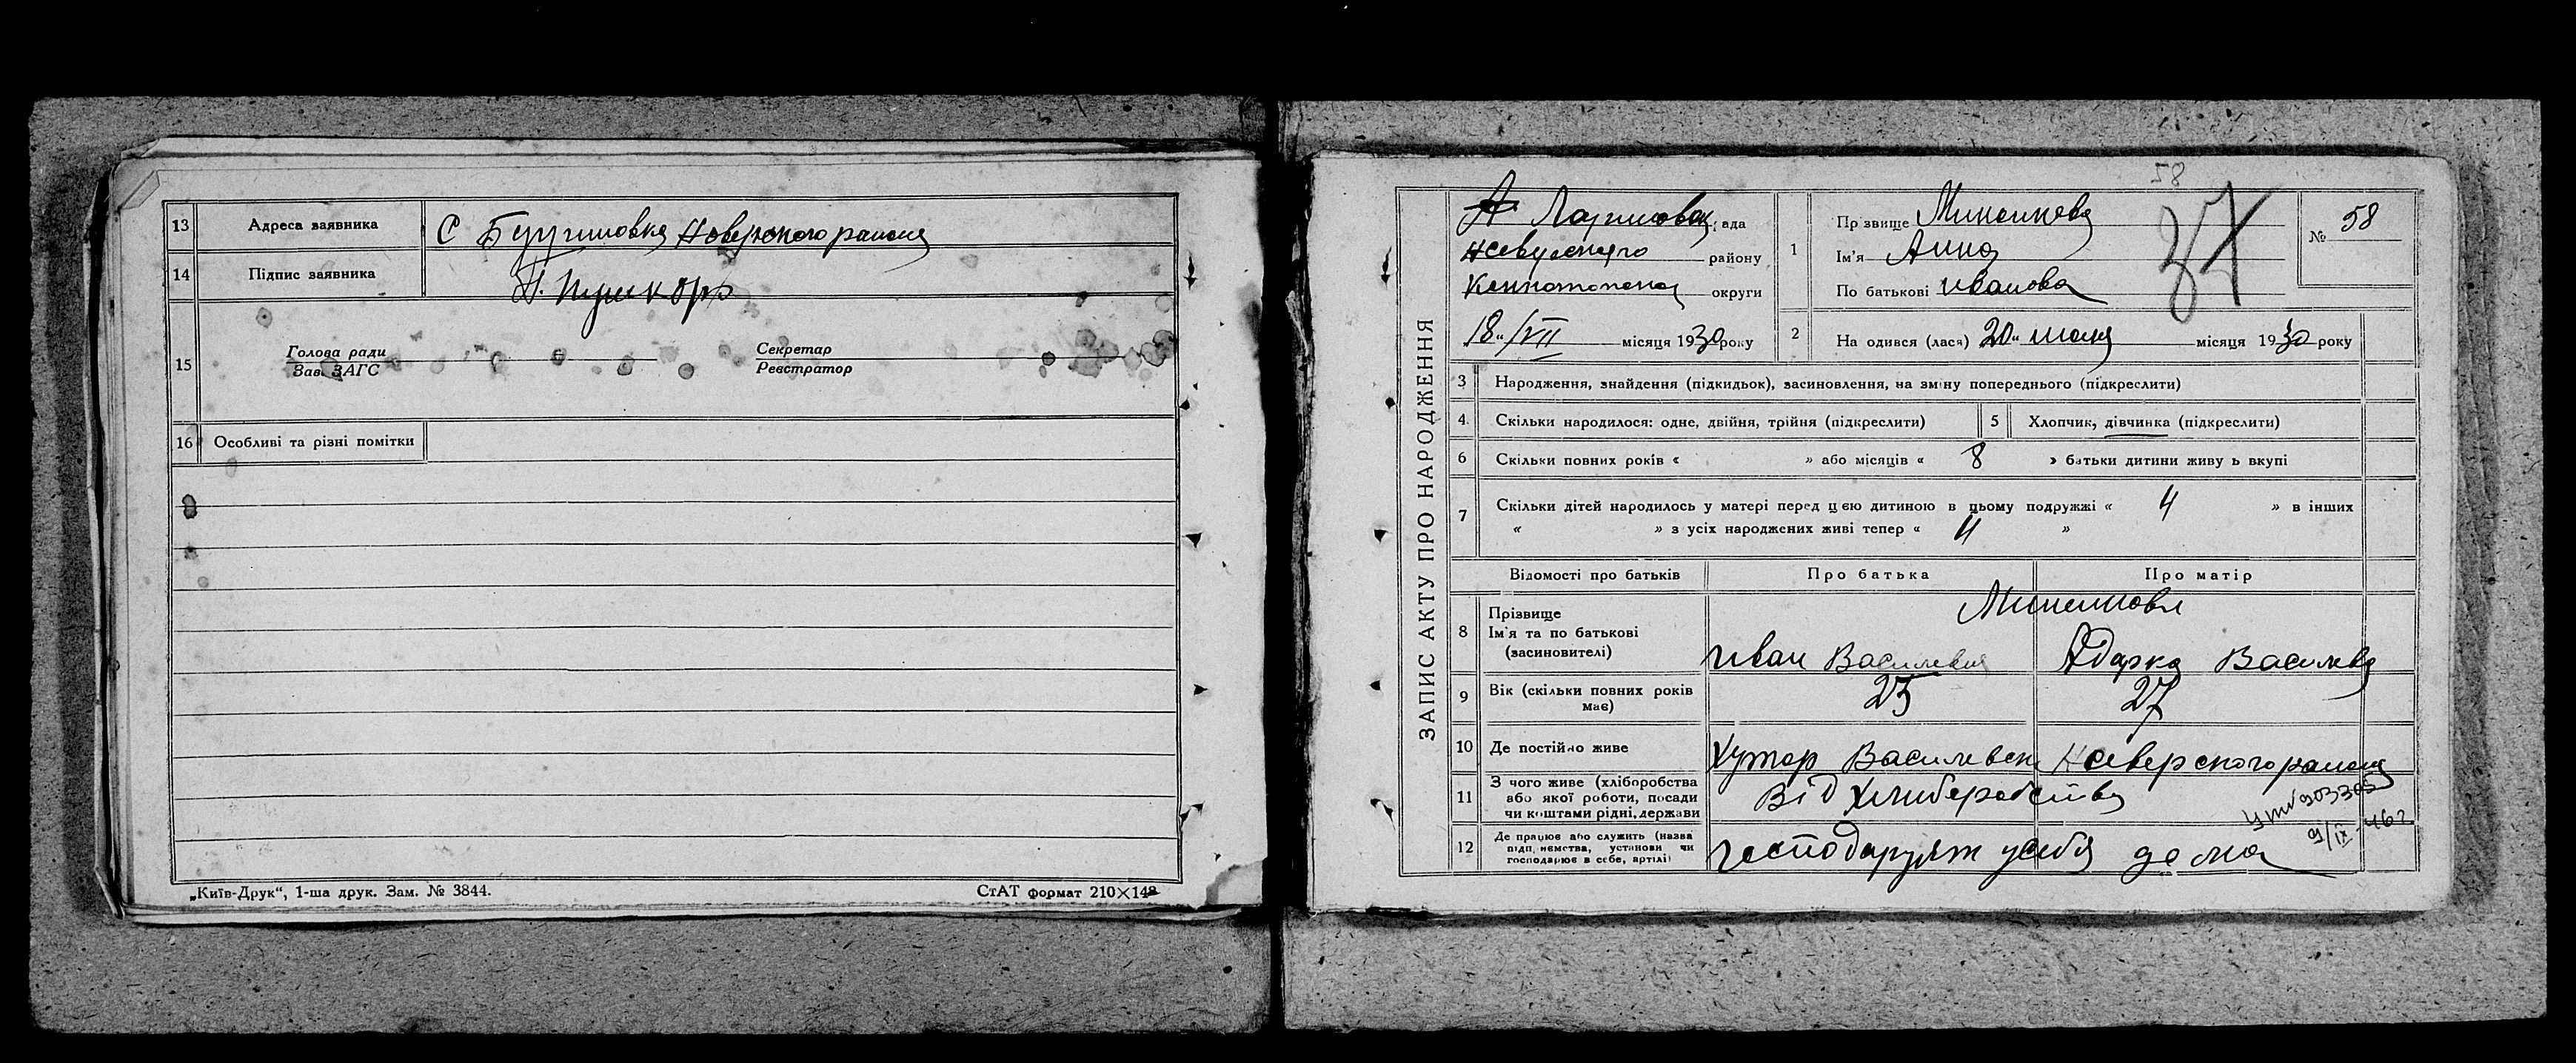 13 Адреса заявника С Новерского района
14 Підпис заявника
15 Голова ради Секретар
Зав. ЗАГС Реєстратор
16 Особливі та різні помітки
„Київ-Друк“, 1-ша друк. Зам. № 3844. СтАТ формат 210×148
58
ЗАПИС АКТУ ПРО НАРОДЖЕННЯ
рада
району
округи
18 /VII місяця 1930 року
1 Прізвище
Ім'я Анна
По батькові Иванова
37
№ 58
2 На одився (лася) 20 июля місяця 1930 року
3 Народження, знайдення (підкидьок), засиновлення, на зміну попереднього (підкреслити)
4 Скільки народилося: одне, двійня, трійня (підкреслити) 5 Хлопчик, дівчинка (підкреслити)
6 Скільки повних років « » або місяців « 8 » батьки дитини живуть вкупі
7 Скільки дітей народилось у матері перед цією дитиною в цьому подружжі « 4 » в інших
« » з усіх народжених живі тепер « 4 »
Відомості про батьків Про батька Про матір
8 Прізвище
Ім'я та по батькові
(засиновителі) Иван Василевич Одарка Василева
9 Вік (скільки повних років
має) 25 27
10 Де постійно живе Хутор Василевск Новерского района
11 З чого живе (хліборобства
або якої роботи, посади
чи коштами рідні, держави Від хлиберобства
12 Де працює або служить (назва
підприємства, установи чи
господарює в себе, артілі) господарует у себя дома
903305
9/IX-46 г